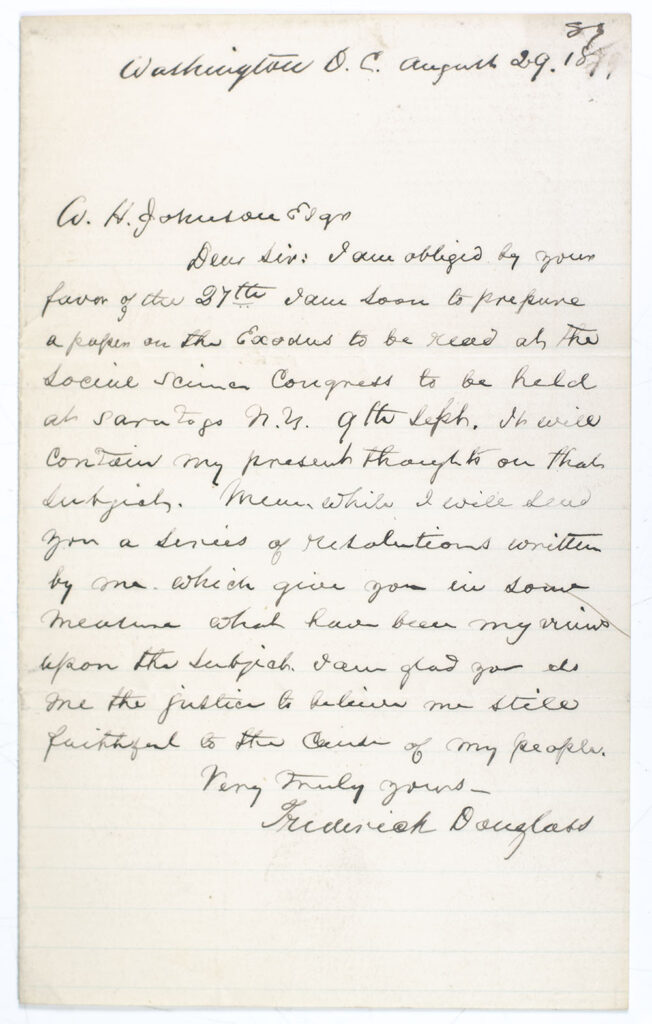 87
Washington D. C. August 29. 1879.
W. H. Johnson Esqr
Dear Sir: I am obliged by your
favor of the 27th I am soon to prepare
a paper on the Exodus to be read at the
Social Science Congress to be held
at Saratoga N.Y. 9th Sept. It will
contain my present thoughts on that
subject. Mean while I will send
you a series of resolutions written
by me. which give you in some
measure what have been my views
upon the subject. I am glad you do
me the justice to believe me still
faithful to the cause of my people.
Very truly yours—
Frederick Douglass